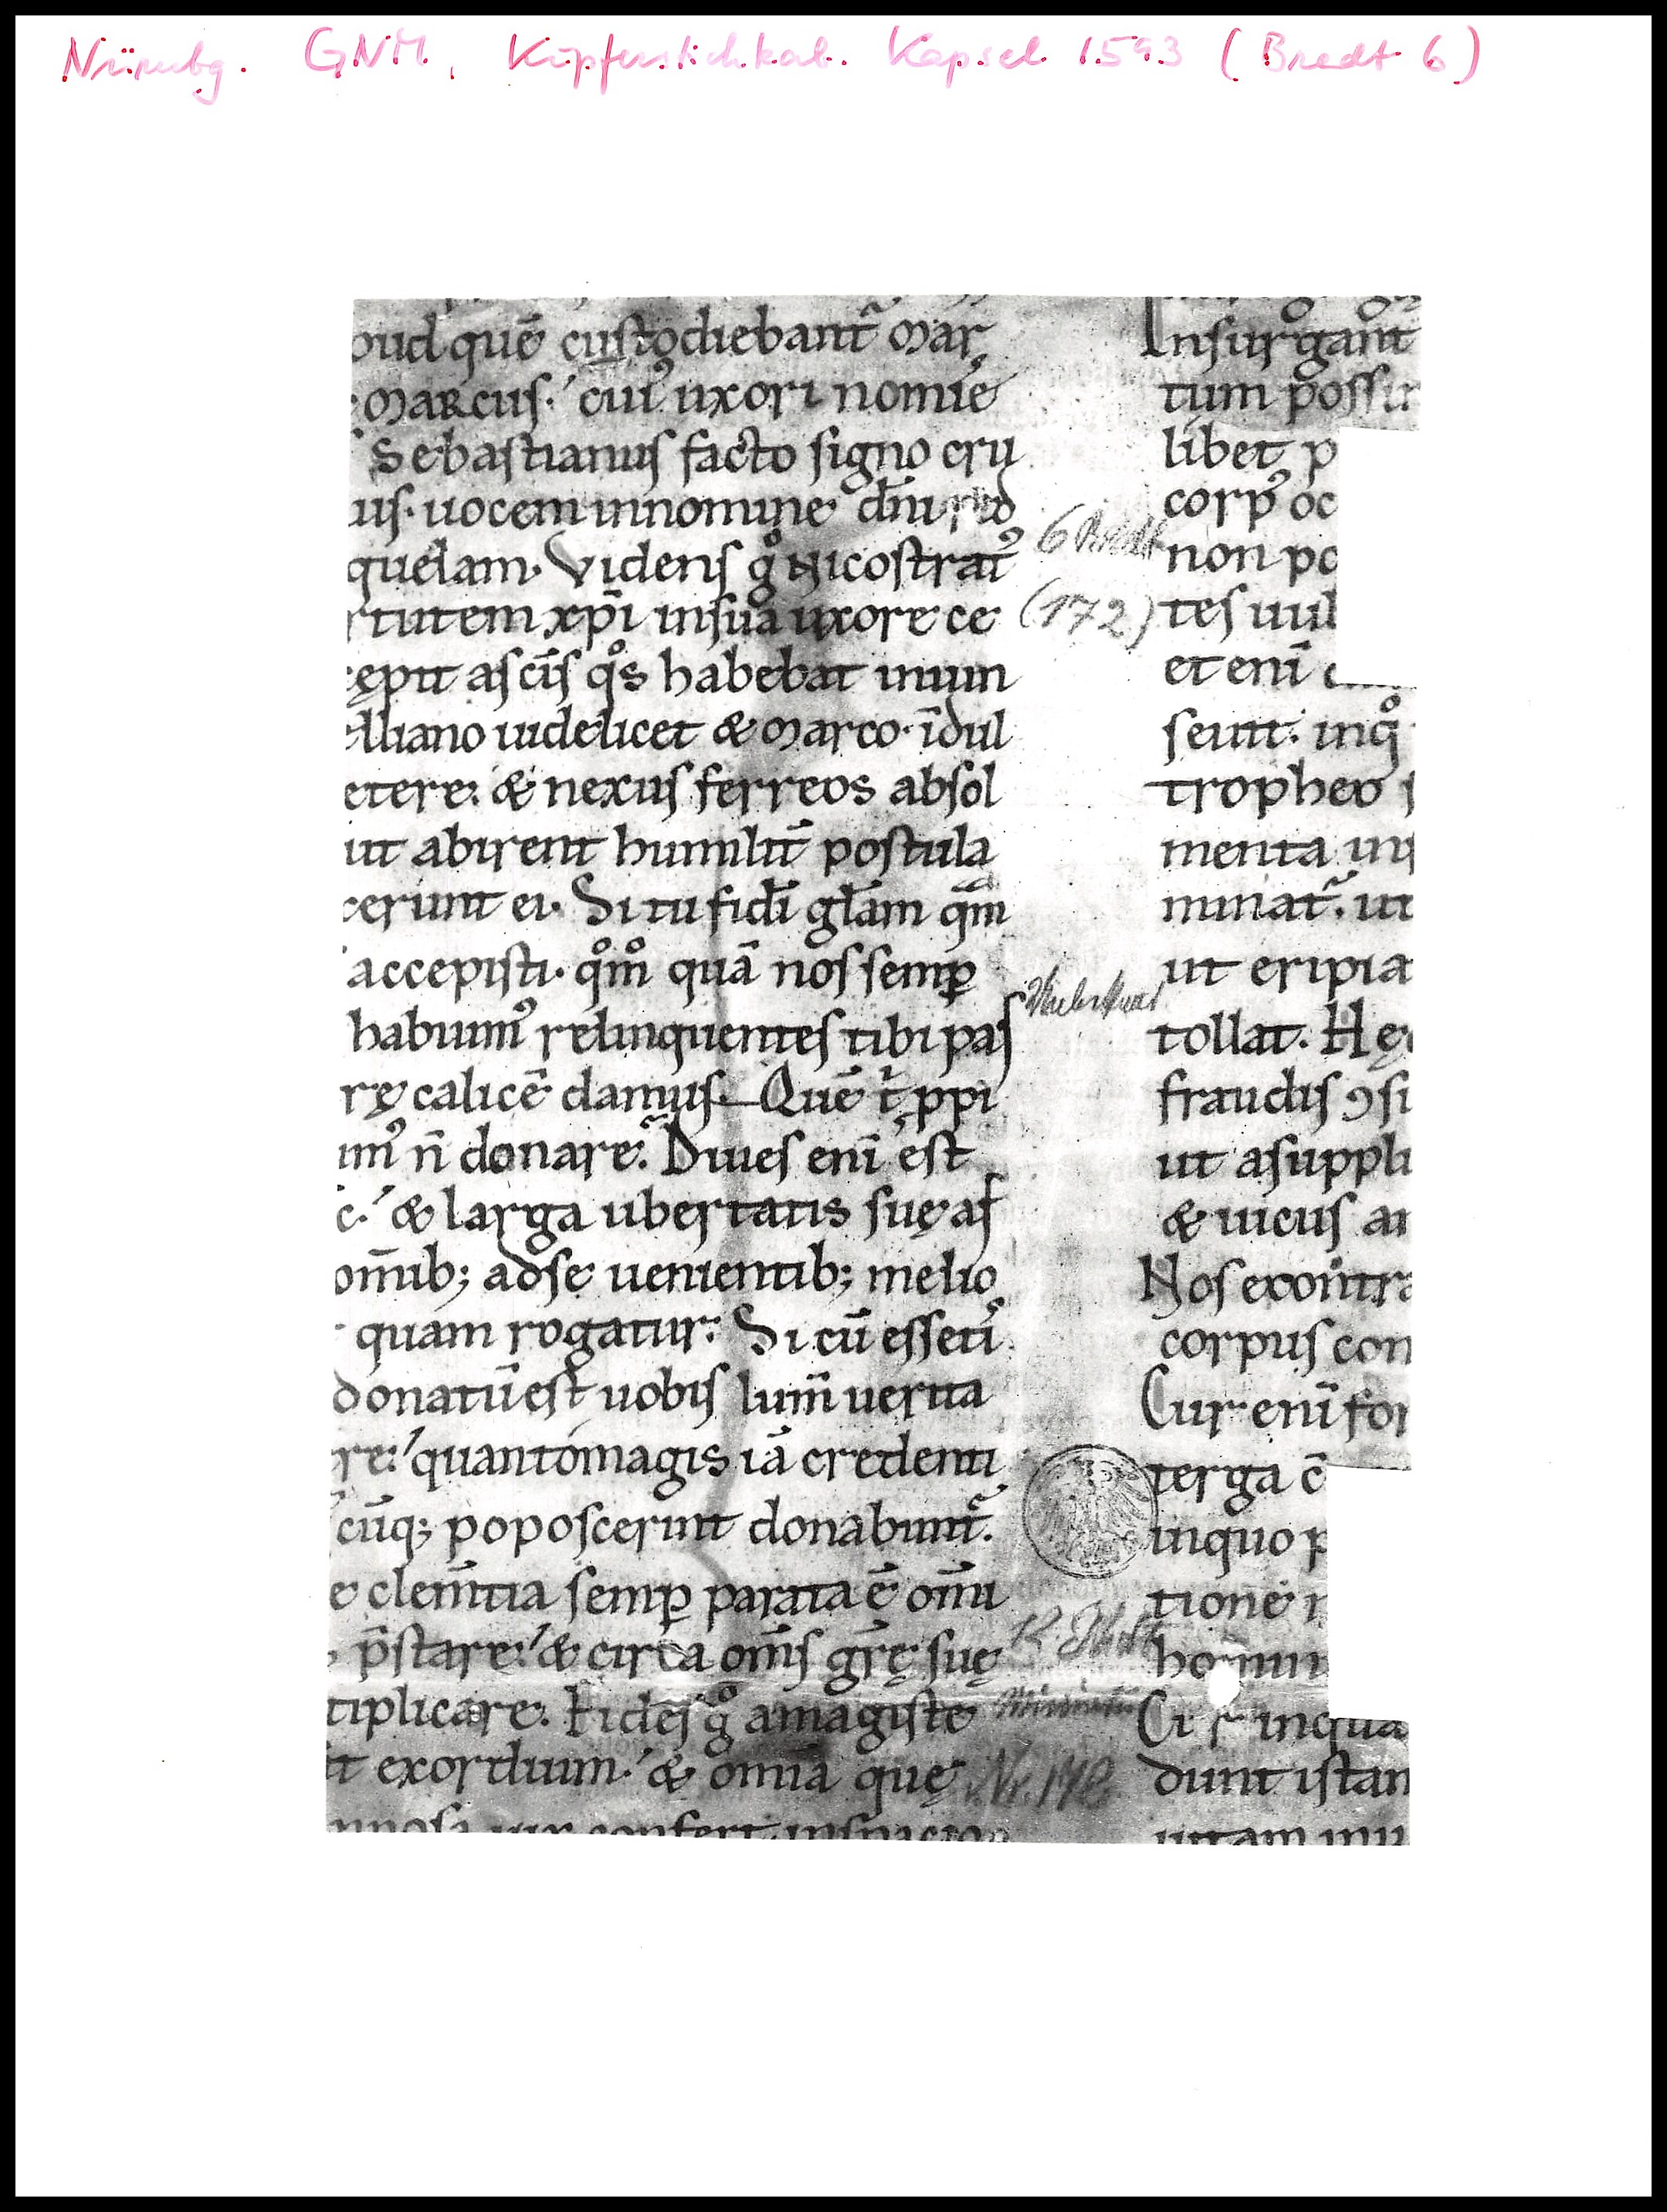 Nürnbg. GNM, Kupferstichkab. Kapsel 1593 (Bredt 6)
pud quē custodiebant᷑ Mar
Marcus. cuiꝰ uxori nomīe
Sebastianus facto signo cru
us. uocem innomine dn̄i
quelam. Videns gͦ Nicostratꝰ
rtutem xp̄i insua uxore ce
cępit asc̄is qͦs habebat inuin
elliano uidelicet & Marco. īdul
etere. & nexus ferreos absol
ut abirent humilit̄ postula
cerunt ei. Si tu fidi gl̄am qm̄
accepisti. qͦmͦ quā nos semꝑ
habuimꝰ relinquentes tibi pas
rę calicē damus. Quē t̄ ppi
imꝰ n̄ donare. Diues enī est
& larga ubertatis suę af
om̄ib; adse uenientib; melio
quam rogatur. Si cū essetiꝰ
donatū est uobis lum̄ uerita
re. quantomagis iā credenti
cūq; poposcerint donabunt᷑.
e clem̄tia semꝑ parata ē om̄i
p̄stare. & circa om̄is gr̄ę suę
tiplicare. Fides gͦ amagiste
it exordium. & omnia quę
Insurgant
tum possu
libet p
corpꝰ oc
non po
tes uul
et enī
seunt. inqͦ
tropheo
menta in
minat᷑. ut
ut eripia
tollat. Hę
fraudis ꝯsi
ut asuppli
& uicus a
Nos econtra
corpus con
Cur enī for
terga c̄
inquo p
tione
homin
Ci sr̄ inqua
dunt istan
6 Bredt
(172)
12. Jh
Nr. 172